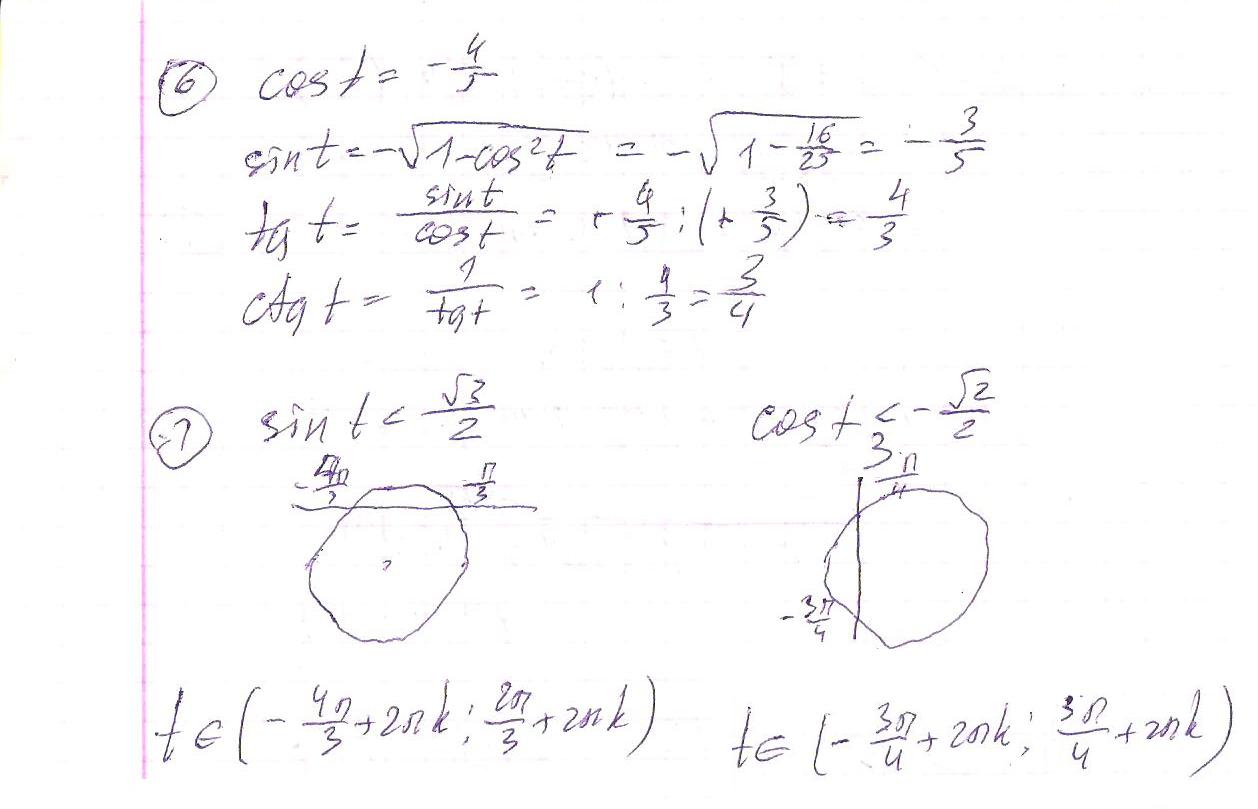 6 cos t = -4/5
sin t = -√(1-cos²t) = -√(1 - 16/25) = -3/5
tg t = sin t/cos t = + 4/5 : (+ 3/5) = 4/3
ctg t = 1/tg t = 1 : 4/3 = 3/4
7 sin t < √3/2 cos t < -√2/2
π/3 3π/4
-3π/4
t ∈ (- 4π/3 + 2πk ; 2π/3 + 2πk) t ∈ (- 3π/4 + 2πk ; 3π/4 + 2πk)